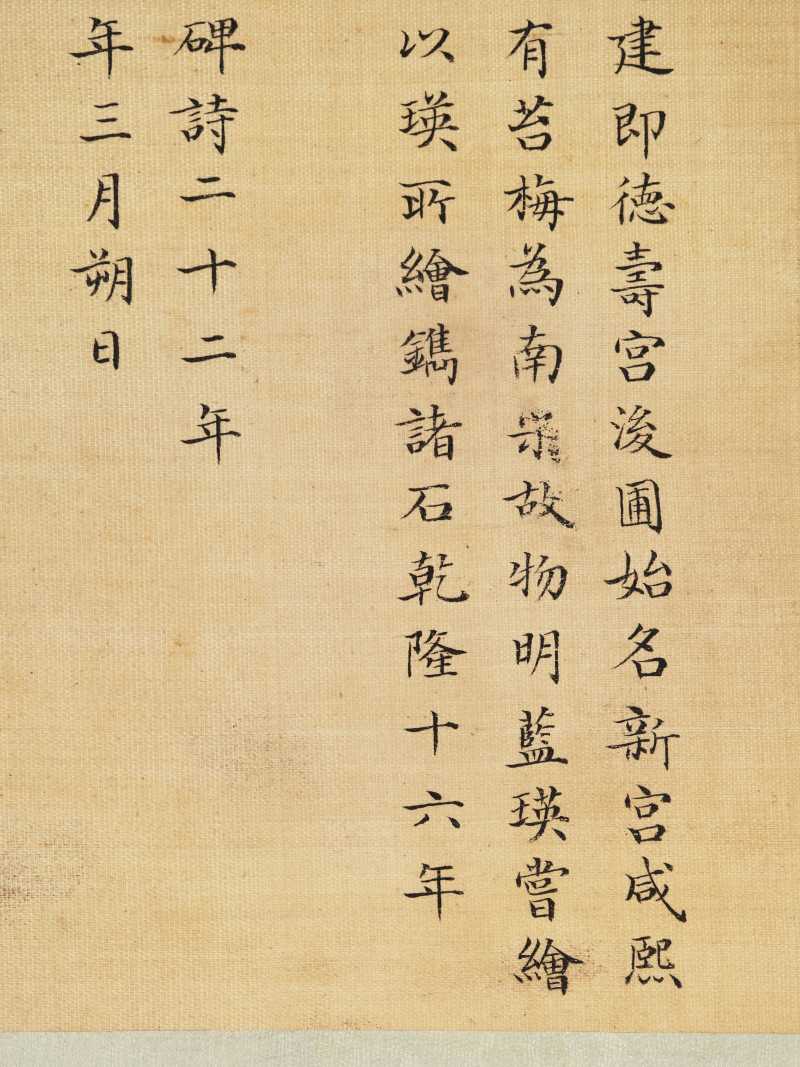 建即德壽宮後圃始名新宮咸熙
有苔梅為南宋故物明藍瑛嘗繪
以瑛所繪鐫諸石乾隆十六年
碑詩二十二年
年三月朔日